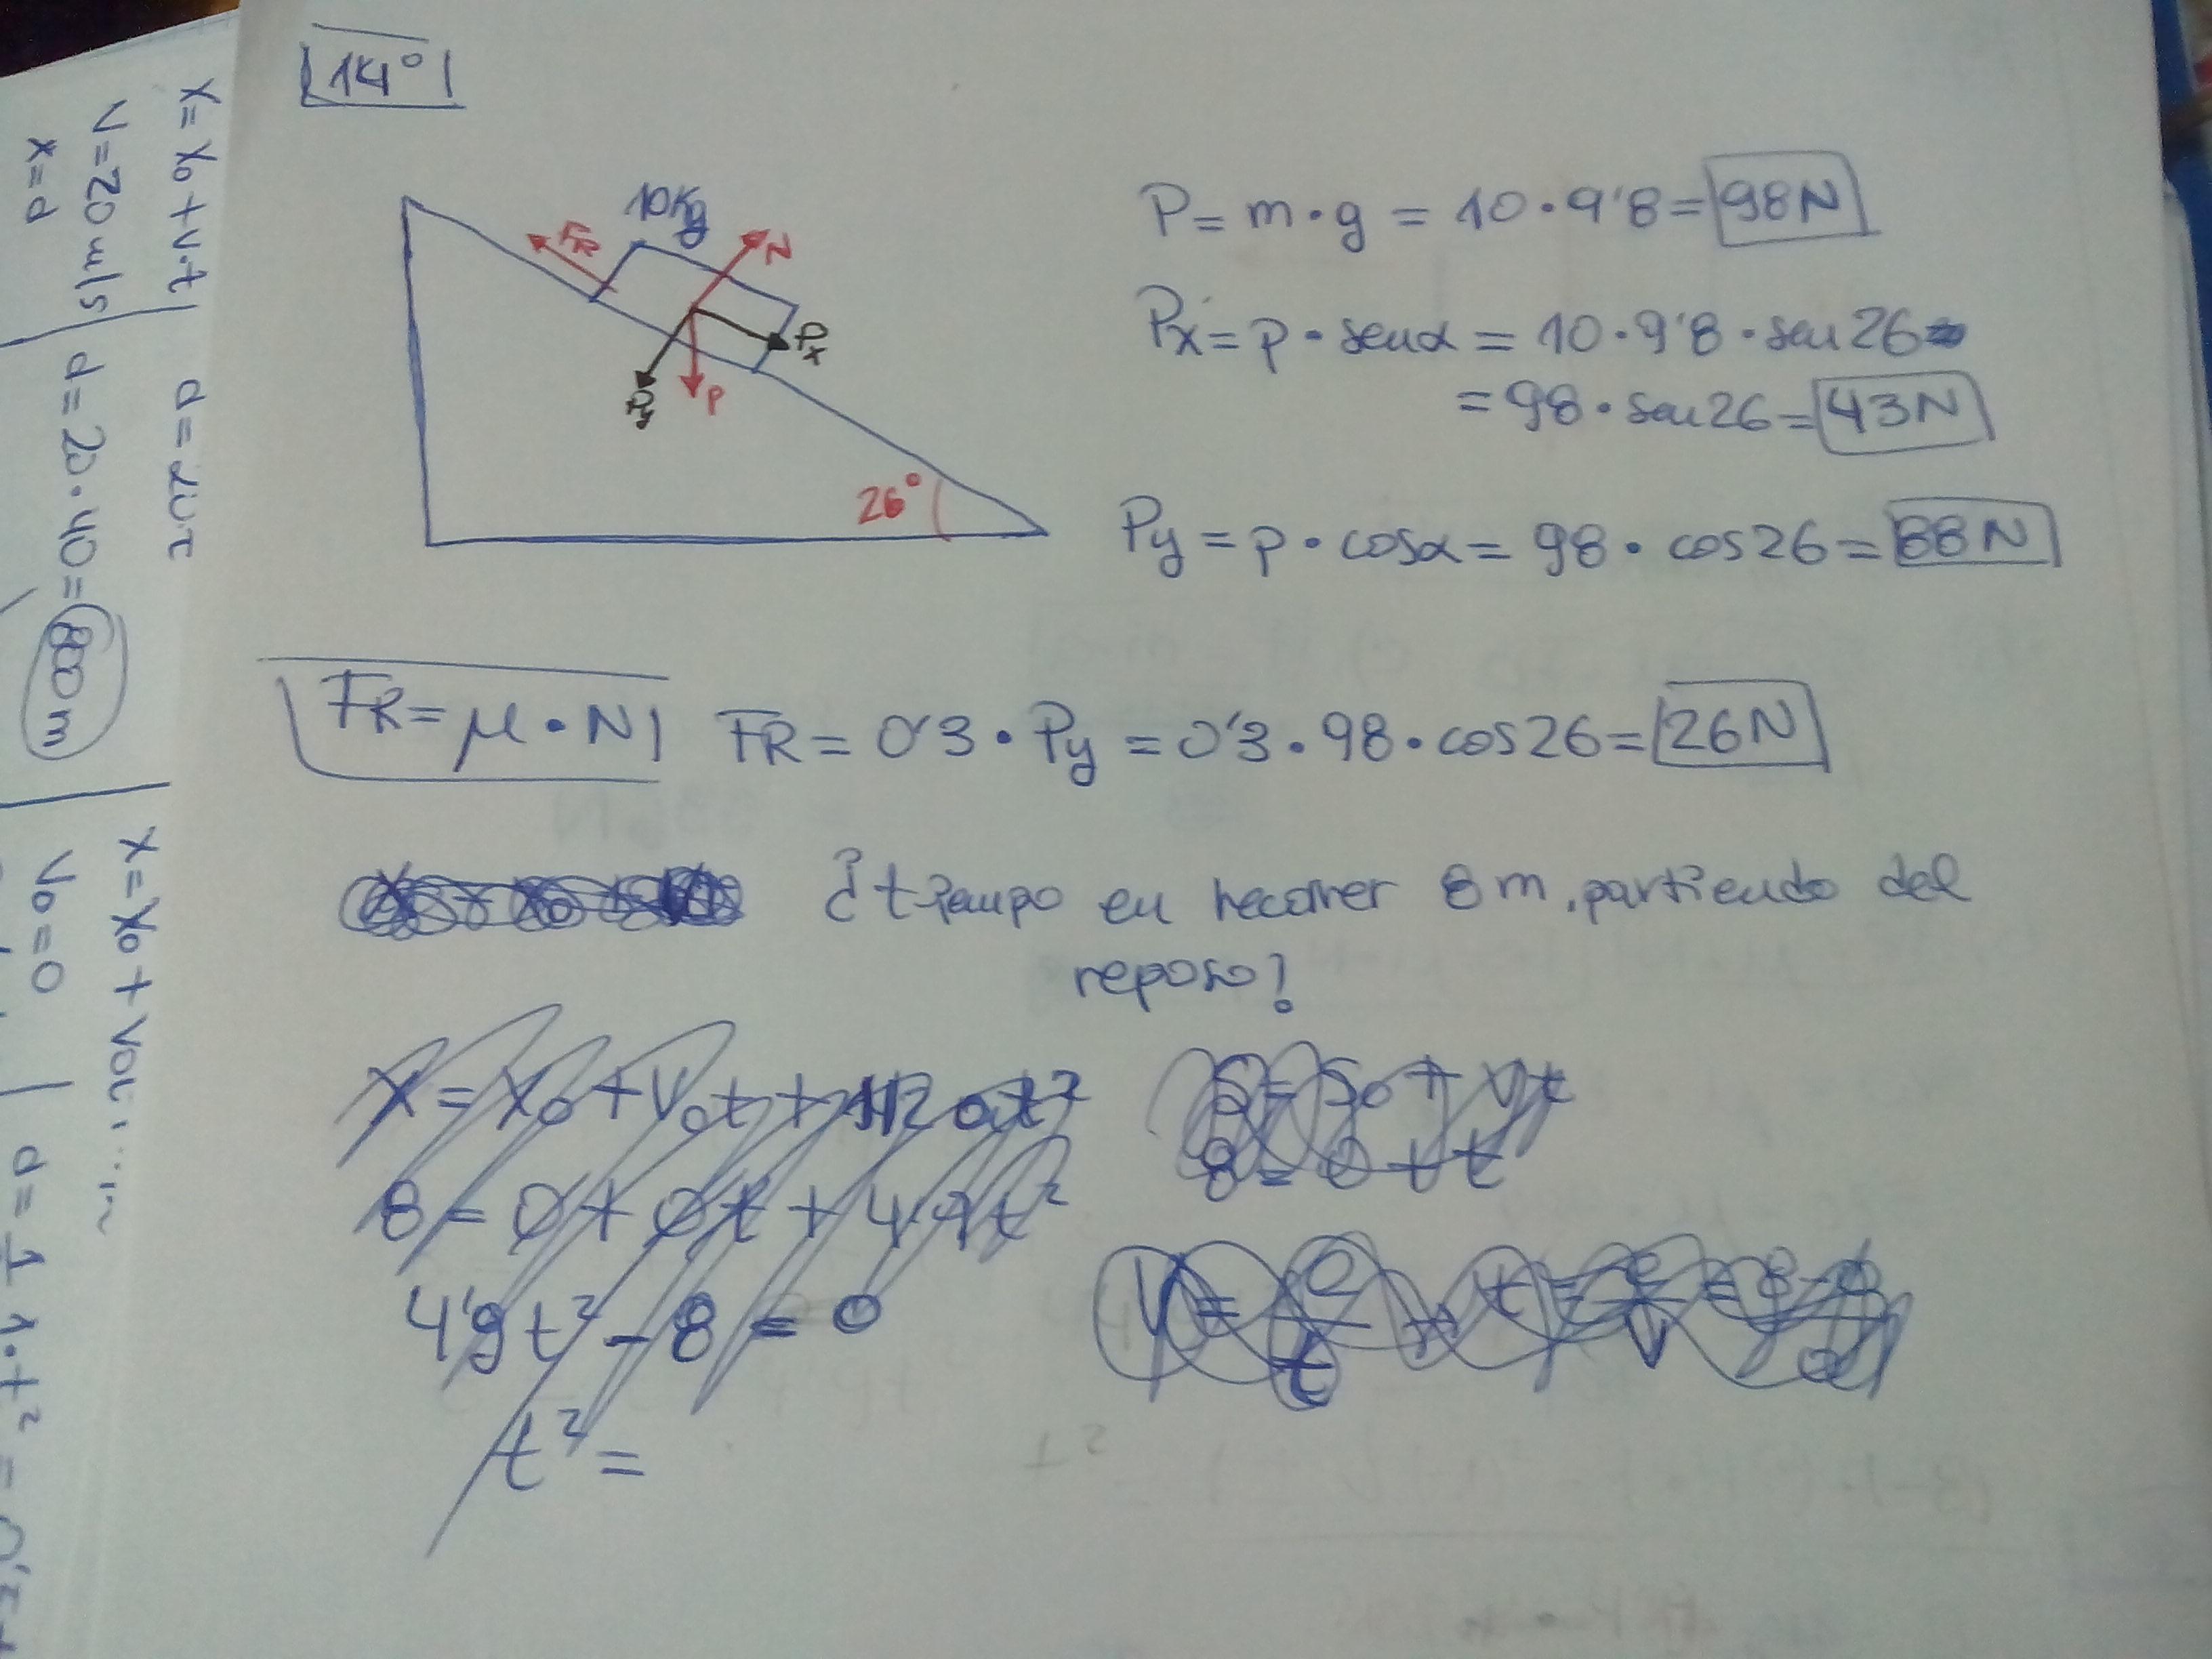 14°
10Kg
FR
N
Px
Py
P
26°
P = m · g = 10 · 9'8 = 98N
Px = p · senα = 10 · 9'8 · sen 26
= 98 · sen 26 = 43N
Py = p · cosα = 98 · cos 26 = 88N
FR = μ · N
FR = 0'3 · Py = 0'3 · 98 · cos 26 = 26N
¿ tiempo en recorrer 8 m. partiendo del
reposo?
x = x₀ + v₀t + 1/2 at²
8 = 0 + 0t + 4'9t²
4'9t² - 8 = 0
t² =
S = S₀ + vt
8 = 0 + t
x = x₀ + v.t
v = 20 m/s
x = d
d = 20 · 40 = 800 m
x = x₀ + v₀t
v₀ = 0